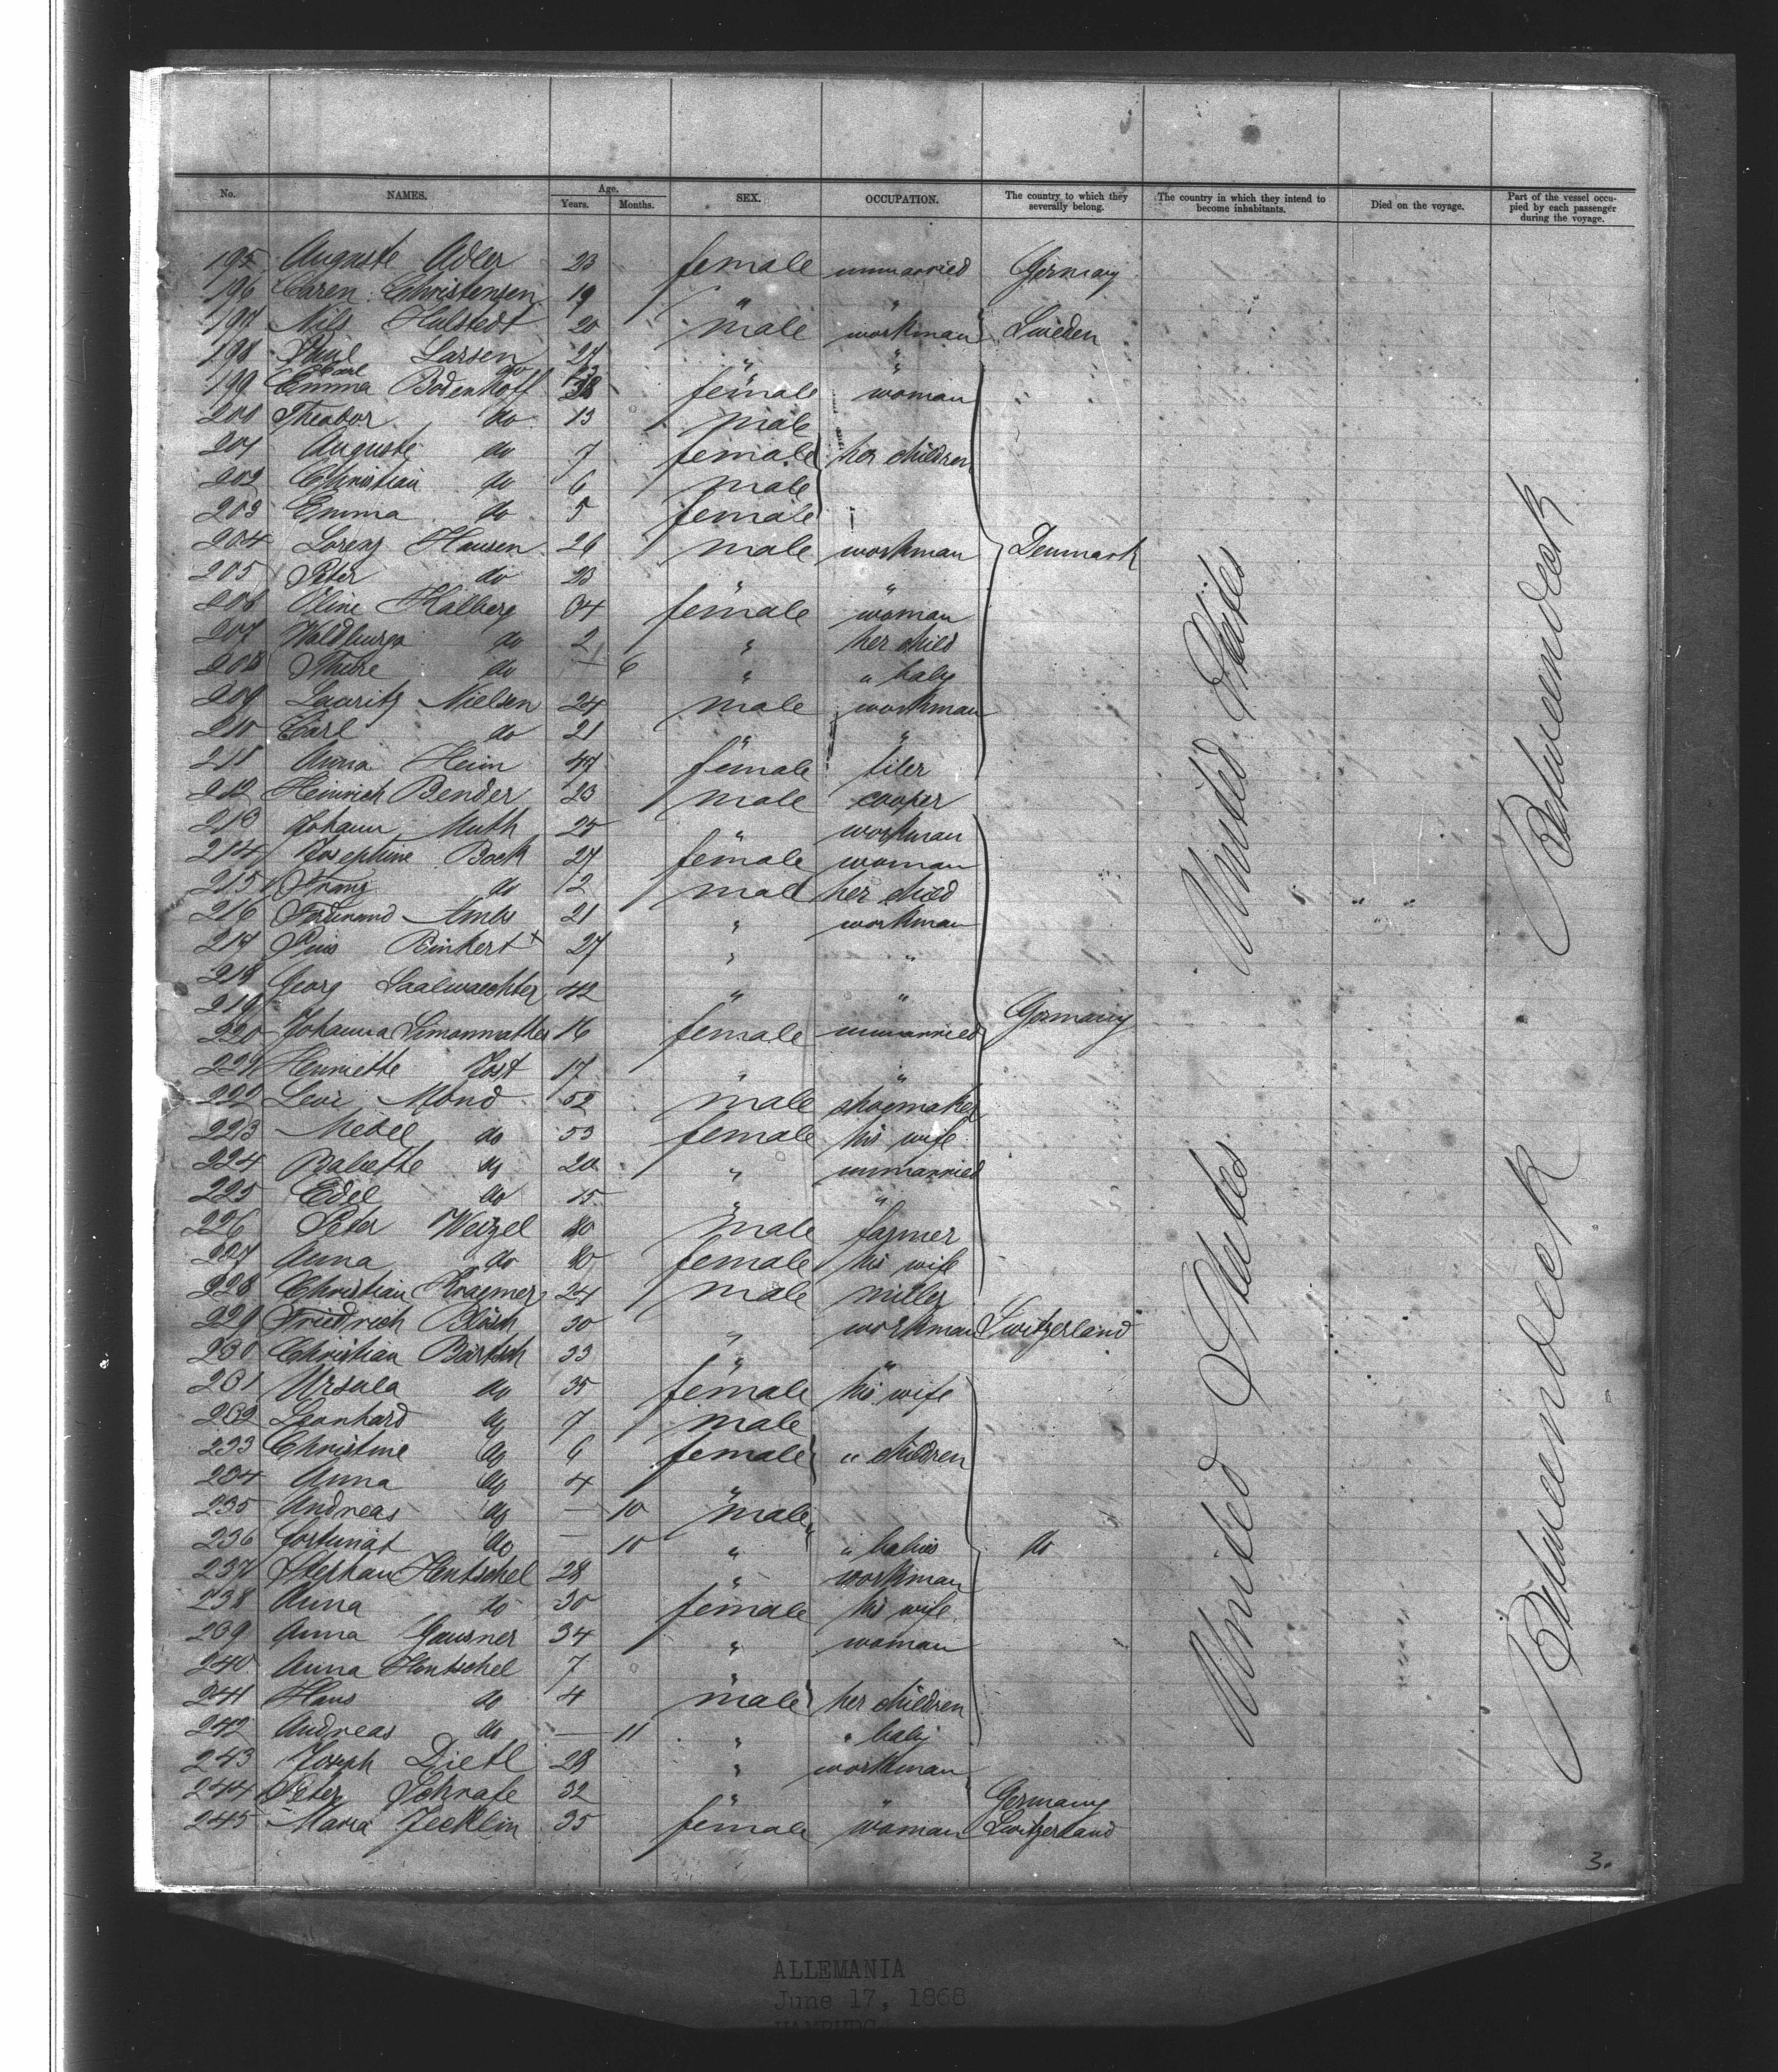 No. NAMES. Age. Years. Months. SEX. OCCUPATION. The country to which they severally belong. The country in which they intend to become inhabitants. Died on the voyage. Part of the vessel occupied by each passenger during the voyage.
195 Auguste Adler 23 female unmarried Germany
196 Caren Christensen 19 " "
197 Nils Halstedt 20 male workman Sweden
198 Paul Larsen 27 " "
Carl do
199 Emma Bodenhoff 38 female woman
200 Theodor do 13 male
201 Auguste do 7 female her children
202 Christian do 6 male
203 Emma do 5 female
204 Lorenz Hansen 26 male workman Denmark
205 Peter do 23 " "
206 Oline Kalberg 34 female woman
207 Waldburga do 2 " her child
208 Thure do — 6 " " baby
209 Lauritz Nielsen 24 male workman
210 Carl do 21 " "
211 Anna Heim 47 female tiler
212 Heinrich Bender 23 male cooper
213 Johann Muth 25 " workman
214 Josephine Bock 27 female woman
215 Franz do 2 male her child
216 Ferdinand Ambs 21 " workman
217 Pius Binkert + 27 " "
218 Georg Saalwaechter 42 " "
219 Germany
220 Johanna 16 female unmarried
221 Henriette Jost 17 " "
222 Levi Mond 52 male shoemaker
223 Medel do 53 female his wife
224 Babette do 20 " unmarried
225 Edel do 15 " "
226 Peter Weizel 80 male farmer
227 Anna do 80 female his wife
228 Christian Kraemer 24 male miller
229 Friedrich Blösch 30 " workman Switzerland
230 Christian Bartsch 33 " "
231 Ursula do 35 female his wife
232 Leonhard do 7 male
233 Christine do 6 female " children
234 Anna do 4 "
235 Andreas do — 10 male
236 Fortunat do — 10 " " babies do
237 Stephan Hentschel 28 " workman
238 Anna do 30 female his wife
239 Anna Gausner 34 " woman
240 Anna Hentschel 7 "
241 Hans do 4 male her children
242 Andreas do — 11 " " baby
243 Joseph Dietl 28 " workman
244 Peter Schrafe 32 " " Germany
245 Maria Jecklin 35 female woman Switzerland
United States
Betweendeck
United States
Betweendeck
3.
ALLEMANIA
June 17, 1868
HAMBURG